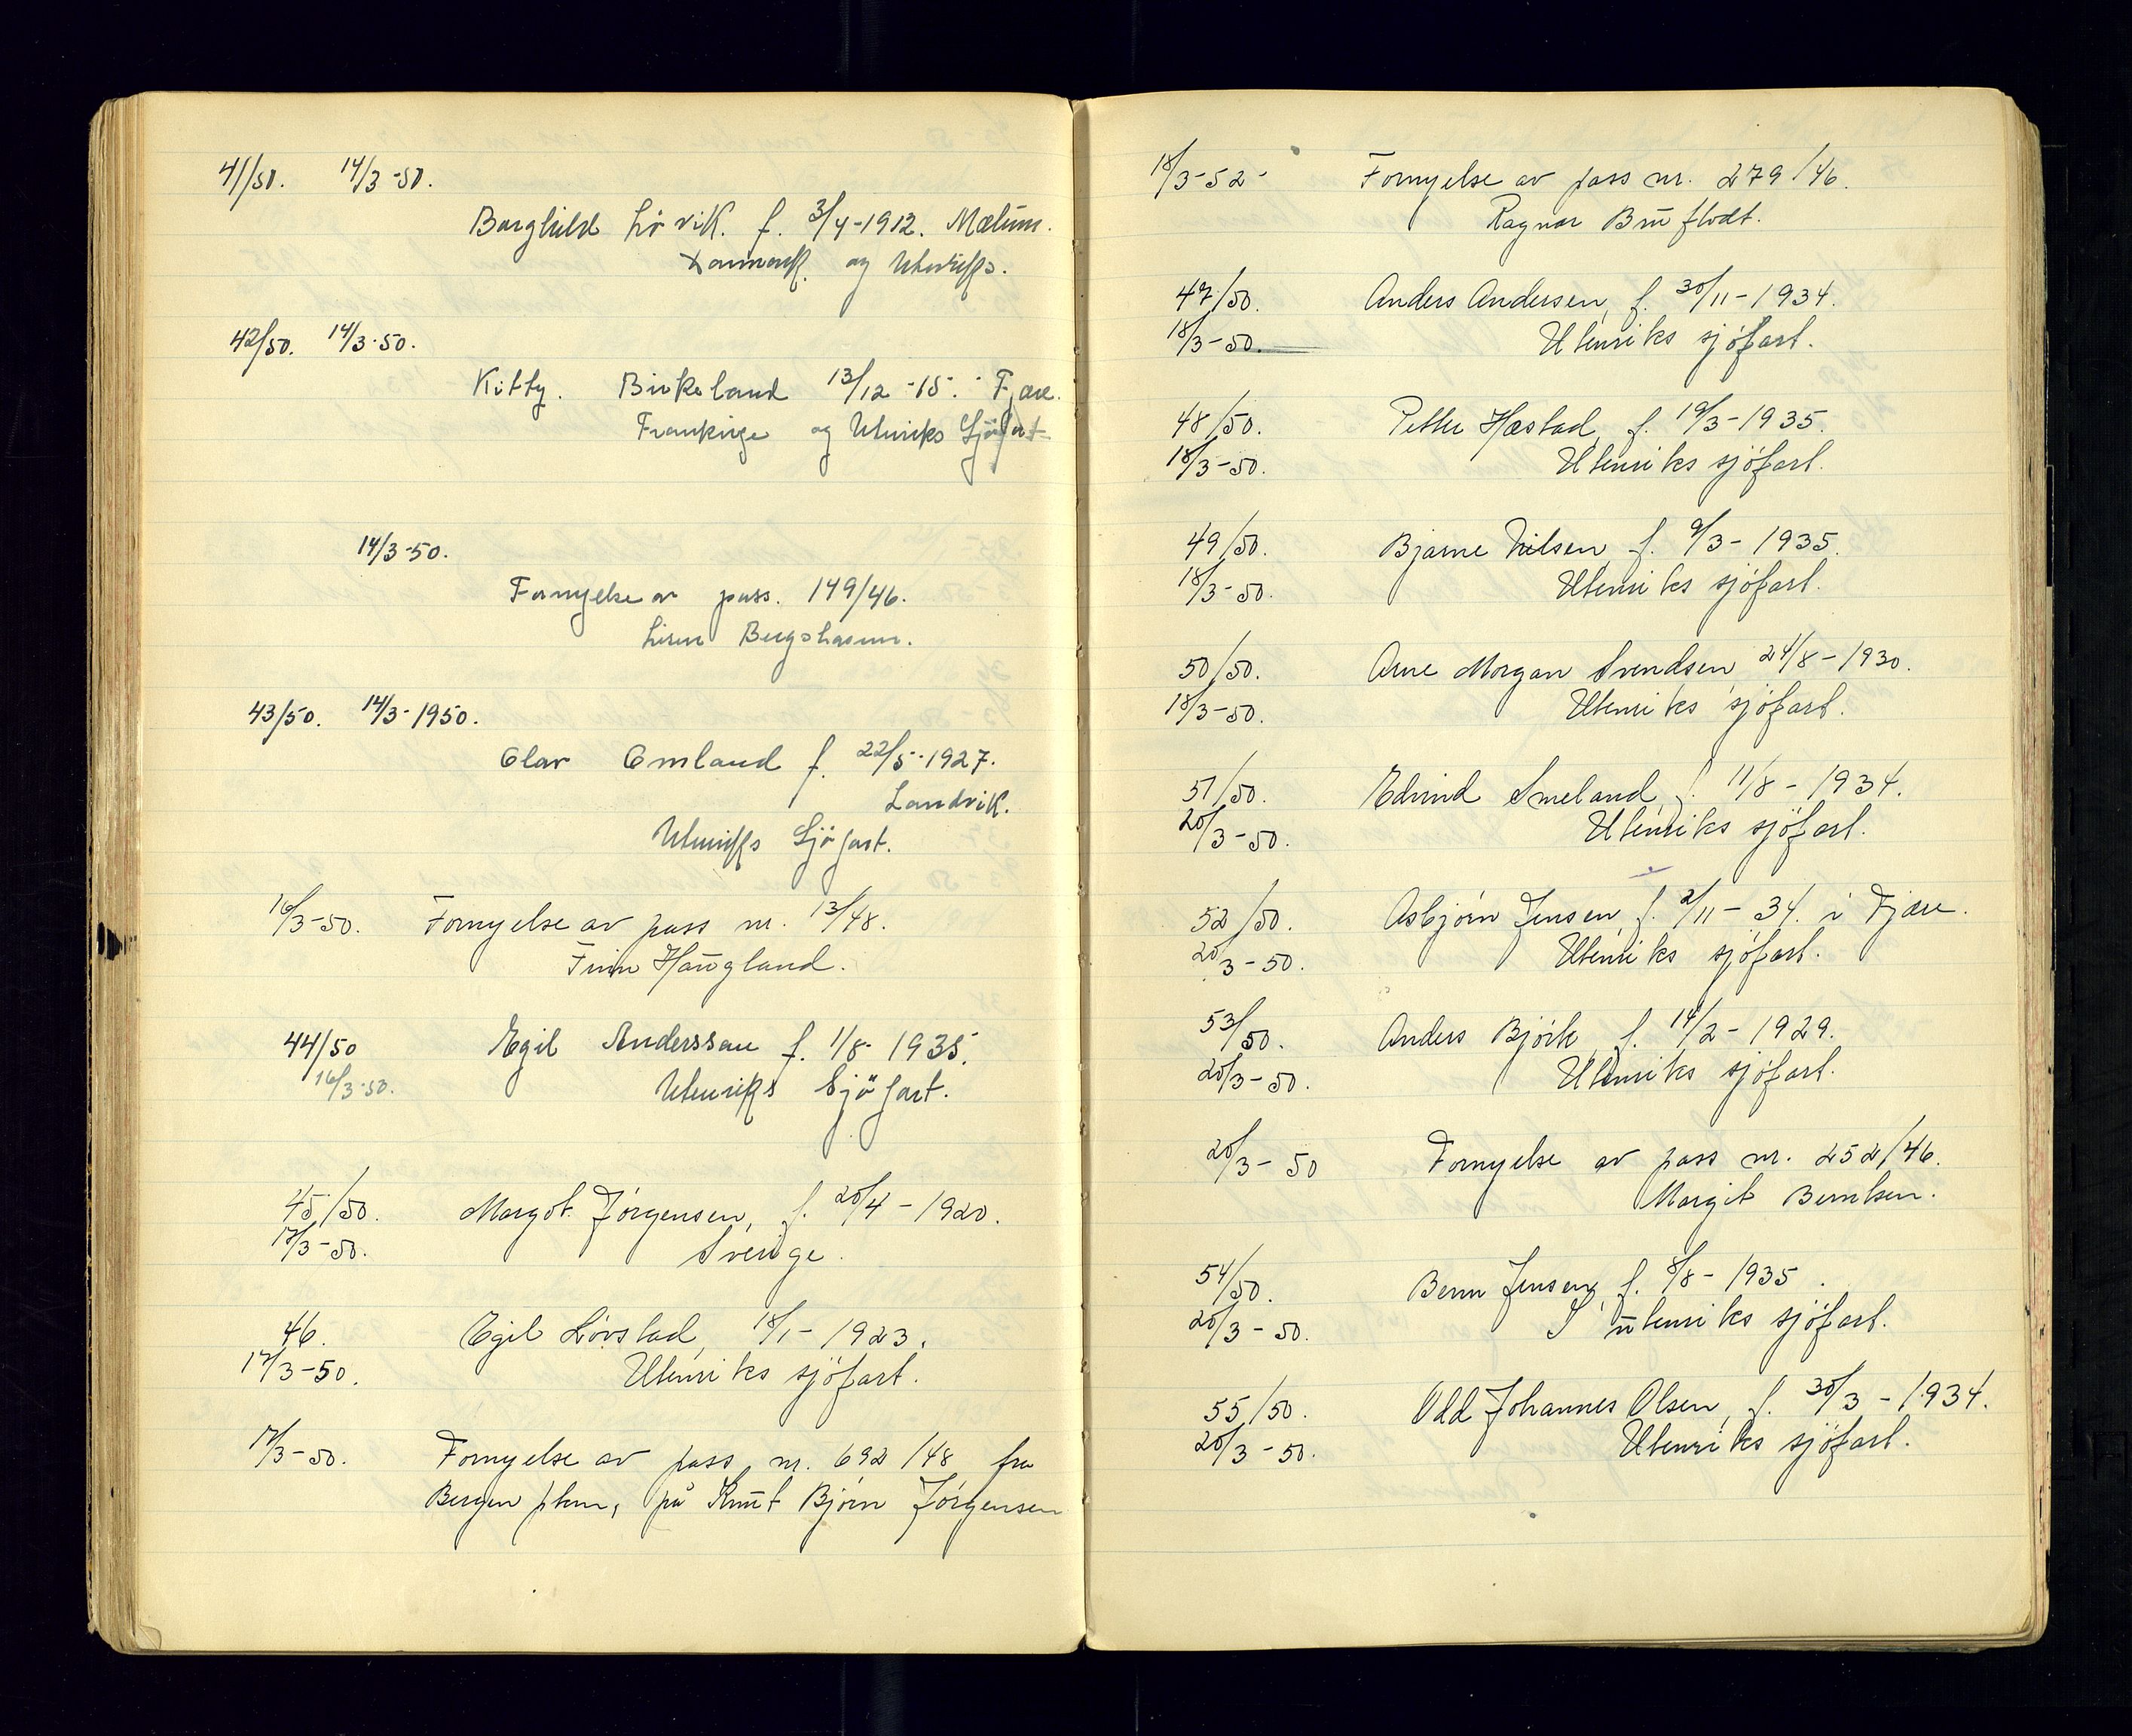 41/50. 14/3-50.
Borghild Lövik. f. 3/4-1912. Mælum.
Danmark og Utenriks.
42/50. 14/3-50.
Kitty. Birkeland 13/12-15. Fjære.
Frankrige og Utenriks Sjöfart
14/3-50.
Fornyelse av pass. 149/46.
43/50. 14/3-1950.
Olav Omland f. 22/5-1927.
Landvik.
Utenriks Sjöfart.
16/3-50. Fornyelse av pass nr. 13/48.
Finn Haugland.
44/50 Egil Anderssen f. 1/8-1935.
16/3-50. Utenriks Sjöfart.
45/50. Margot Jörgensen, f. 20/4-1920.
17/3-50. Sverige.
46. Egil Lövstad, 18/1-1923.
17/3-50. Utenriks sjöfart.
17/3-50. Fornyelse av pass nr. 692/48 fra
Bergen pkm, på Knut Björn Jörgensen
18/3-52- Fornyelse av pass nr. 279/46.
Ragnar Bruflodt.
47/50. Anders Andersen, f. 30/11-1934.
18/3-50. Utenriks sjöfart.
48/50. Petter Hæstad, f. 19/3-1935.
18/3-50. Utenriks sjöfart.
49/50. Bjarne Nilsen f. 9/3-1935.
18/3-50. Utenriks sjöfart.
50/50. Arne Morgan Svendsen 24/8-1930.
18/3-50. Utenriks sjöfart.
51/50. Edvind Smeland, f. 11/8-1934.
20/3-50. Utenriks sjöfart.
52/50. Asbjörn Jensen, f. 2/11-34. i Fjære.
20/3-50. Utenriks sjöfart.
53/50. Anders Björk f. 14/2-1929.
20/3-50. Utenriks sjöfart.
20/3-50 Fornyelse av pass nr. 252/46.
Margit Berntsen.
54/50. Bern Jensen, f. 8/8-1935.
20/3-50. I utenriks sjöfart.
55/50. Odd Johannes Olsen, f. 30/3-1934.
20/3-50. Utenriks sjöfart.